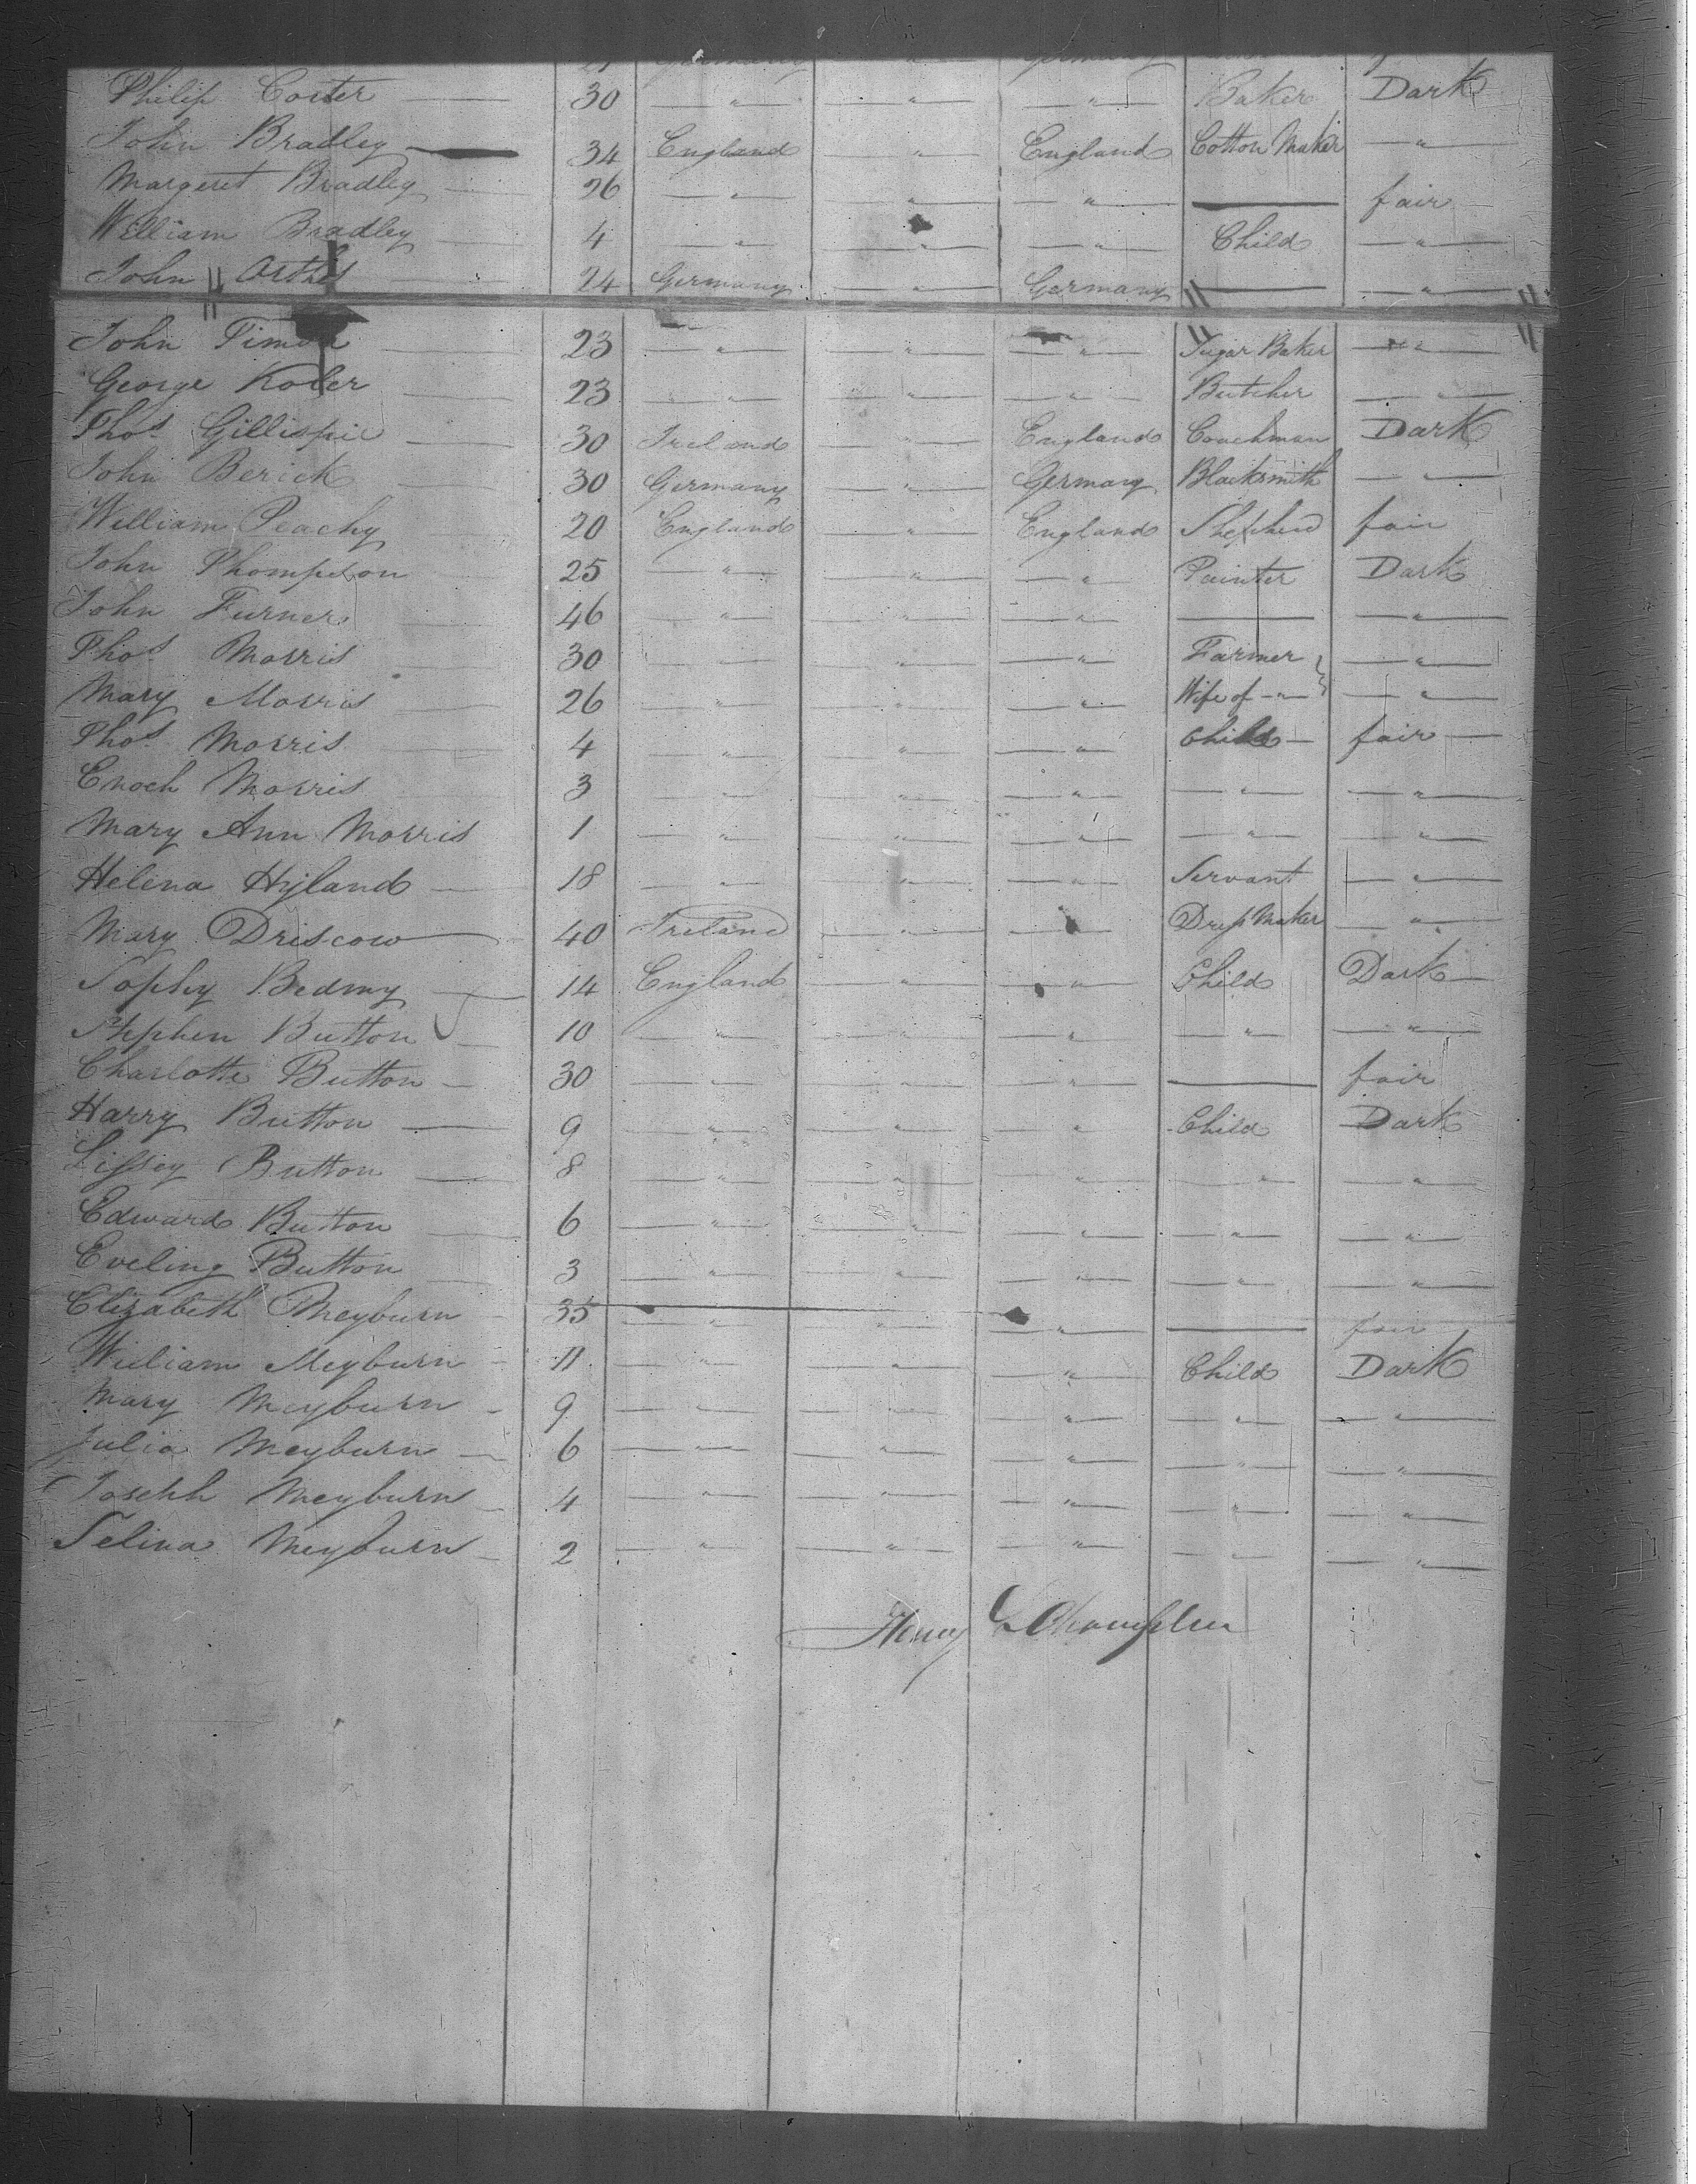 Philip Coster — 30 — " — — " — — " — Baker Dark
John Bradley — 34 England — " — England Cotton Maker — " —
Margeret Bradley — 26 — " — — " — — " — — fair —
William Bradley — 4 — " — — " — — " — Child — " —
John — 24 Germany — " — Germany — — " —
John Timon — 23 — " — — " — — " — Sugar Baker — " —
George Koler — 23 — " — — " — — " — Butcher — " —
Thos. Gillispie — 30 Ireland — " — England Coachman Dark
John Berick — 30 Germany — " — Germany Blacksmith — " —
William Peachy 20 England — " — England Shepherd fair
John Thompson 25 — " — — " — — " — Painter Dark
John Turner — 46 — " — — " — — " — — — " —
Thos. Morris — 30 — " — — " — — " — Farmer } — " —
Mary Morris — 26 — " — — " — — " — Wife of — " — } — " —
Thos. Morris — 4 — " — — " — — " — Child — fair —
Enoch Morris — 3 — " — — " — — " — — " — — " —
Mary Ann Morris 1 — " — — " — — " — — " — — " —
Helena Hyland — 18 — " — — " — — " — Servant — " —
Mary Driscow — 40 Ireland — " — — " — Dress Maker — " —
Sophy Bedmy — 14 England — " — — " — Child Dark —
Stephen Button — 10 — " — — " — — " — — " — — " —
Charlotte Button — 30 — " — — " — — " — — fair
Harry Button — 9 — " — — " — — " — Child Dark
Lissey Button — 8 — " — — " — — " — — " — — " —
Edward Button — 6 — " — — " — — " — — " — — " —
Eveling Button — 3 — " — — " — — " — — " — — " —
Elizabeth Meyburn — 35 — " — — " — — " — — fair
William Meyburn — 11 — " — — " — — " — Child Dark
Mary Meyburn — 9 — " — — " — — " — — " — — " —
Julia Meyburn — 6 — " — — " — — " — — " — — " —
Joseph Meyburn — 4 — " — — " — — " — — " — — " —
Selina Meyburn — 2 — " — — " — — " — — " — — " —
Henry Champlin